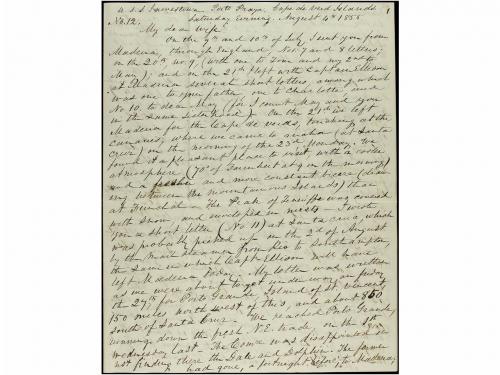 U.S.S. Jamestown. Porto Praya, Cape de Verd Islands
No. 12. Saturday Evening. August 4th 1855
My dear Wife,
On the 9th and 10th of July I sent you from
Madeira, through England, Nos. 7 and 8 letters;
on the 20th no. 9, (with one to Tom and my 2nd to
May); and on the 21st I left with Captain Ellison
at Madeira several short letters, among which
was one to your father, one to Charlotte, and
No 10, to dear May (for I count May and you
in the same . On the 21st we left
Madeira for the Cape de verds, touching at the
canaries; where we came to anchor (at Santa
Cruz) on the morning of the 23rd Monday. We
found it a pleasant place to visit with a cooler
atmosphere (70° of Farenheit at 9 in the morning)
and a fresher and more constant breeze (draw
ing between the mountainous Islands) than
at Funchal. The Peak of Teneriffe was covered
with snow and enveloped in mists. I wrote
you a short letter (No 11) at Santa Cruz, which
was probably picked up on the 2nd of August
by the mail steamer from Rio to Southampton,
the same in which Capt. Ellison will have
left Madeira today. My letter was written
as we were about to get under way on friday
the 27th for Porto Grande, Island of St. Vincent,
150 miles north west of this, and about 850
south of Santa Cruz. We reached Porto Grande,
running down the fresh N.E. trade, on the
wednesday last. The Comre was disappointed in
not finding there the Dale and Dolphin. The former
had gone, a fortnight before, to Madeira,